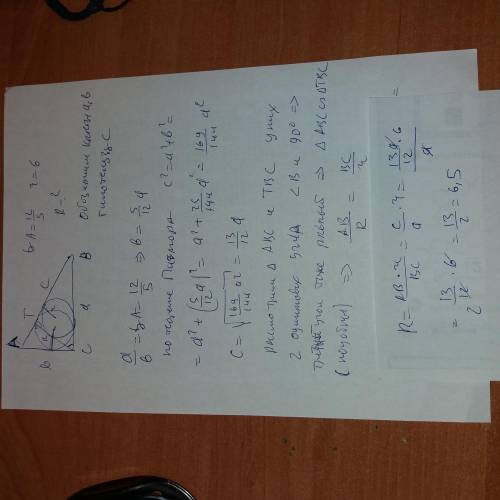 tg A = 12/5 r = 6
R = ?
A
T
b
C
C a B
Обозначим катеты a, b
гипотенузу c
a/b = tg A = 12/5 ⇒ b = 5/12 a
по теореме Пифагора c² = a² + b² =
= a² + (5/12 a)² = a² + 25/144 a² = 169/144 a²
c = √(169/144 a²) = 13/12 a
рассмотрим Δ ABC и TBC у них
2 одинаковых угла ∠B и 90° ⇒
углы тоже равный ⇒ Δ ABC ∾ Δ TBC
(подобны) ⇒ AB/R = BC/r
R = AB · r / BC = c · r / a = 13a · 6 / 12 / a =
= 13/12 · 6 = 13/2 = 6,5
2